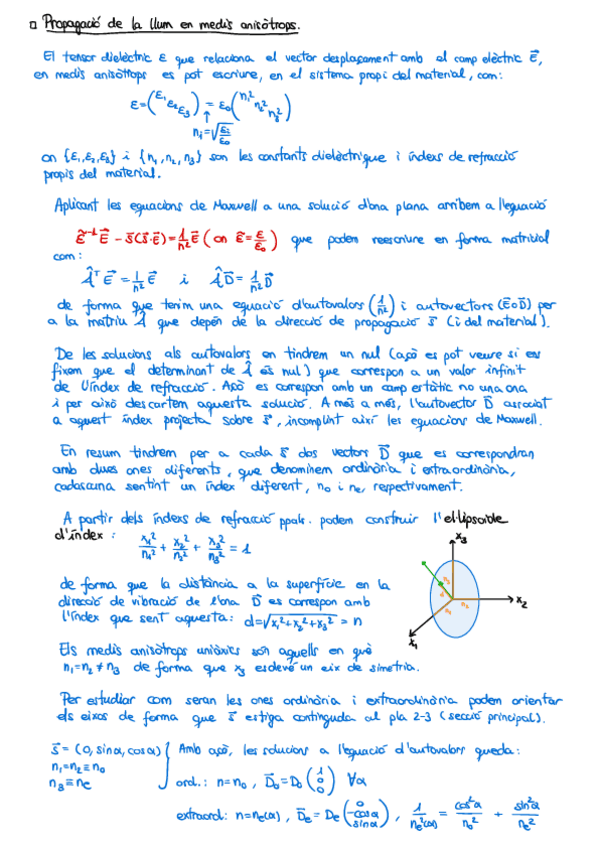 □ Propagació de la llum en medis anisòtrops.
El tensor dielèctric ε que relaciona el vector desplaçament amb el camp elèctric E⃗,
en medis anisòtrops es pot escriure, en el sistema propi del material, com:
ε = (ε₁ ε₂ ε₃) = ε₀ (n₁² n₂² n₃²)
↑
nᵢ = √(εᵢ/ε₀)
on {ε₁, ε₂, ε₃} i {n₁, n₂, n₃} son les constants dielèctrique i índexs de refracció
propis del material.
Aplicant les equacions de Maxwell a una solució d'ona plana arribem a l'equació
ε̃⁻¹ E⃗ - s⃗(s⃗·E⃗) = 1/n² E⃗ (on ε̃ = ε/ε₀) que podem reescriure en forma matricial
com:
Âᵀ E⃗ = 1/n² E⃗ i Â D⃗ = 1/n² D⃗
de forma que tenim una equació d'autovalors (1/n²) i autovectors (E⃗ o D⃗) per
a la matriu Â que depén de la direcció de propagació s⃗ (i del material).
De les solucions als autovalors en tindrem un nul (açò es pot veure si es
fixem que el determinant de Â és nul) que correspon a un valor infinit
de l'índex de refracció. Açò es correspon amb un camp estàtic no una ona
i per això descartem aquesta solució. A més a més, l'autovector D⃗ associat
a aquest índex projecta sobre s⃗, incomplint així les equacions de Maxwell.
En resum tindrem per a cada s⃗ dos vectors D⃗ que es correspondran
amb dues ones diferents, que denominem ordinària i extraordinària,
cadascuna sentint un índex diferent, n₀ i nₑ, respectivament.
A partir dels índexs de refracció ppals. podem construir l'el·lipsoide
d'índex:
x₁²/n₁² + x₂²/n₂² + x₃²/n₃² = 1
x₃
x₂
x₁
n₃
n₂
n₁
de forma que la distància a la superfície en la
direcció de vibració de l'ona D⃗ es correspon amb
l'índex que sent aquesta: d = √(x₁² + x₂² + x₃²) = n
Els medis anisòtrops uniàxics son aquells en què
n₁ = n₂ ≠ n₃ de forma que x₃ esdevé un eix de simetria.
Per estudiar com seran les ones ordinària i extraordinària podem orientar
els eixos de forma que s⃗ estiga continguda al pla 2-3 (secció principal).
s⃗ = (0, sinα, cosα)
n₁ = n₂ ≡ n₀
n₃ ≡ nₑ
Amb açò, les solucions a l'equació d'autovalors queda:
ord.: n = n₀, D⃗₀ = D₀ (1 0 0) ∀α
extraord: n = nₑ(α), D⃗ₑ = Dₑ (0 -cosα sinα), 1/nₑ²(α) = cos²α/n₀² + sin²α/nₑ²